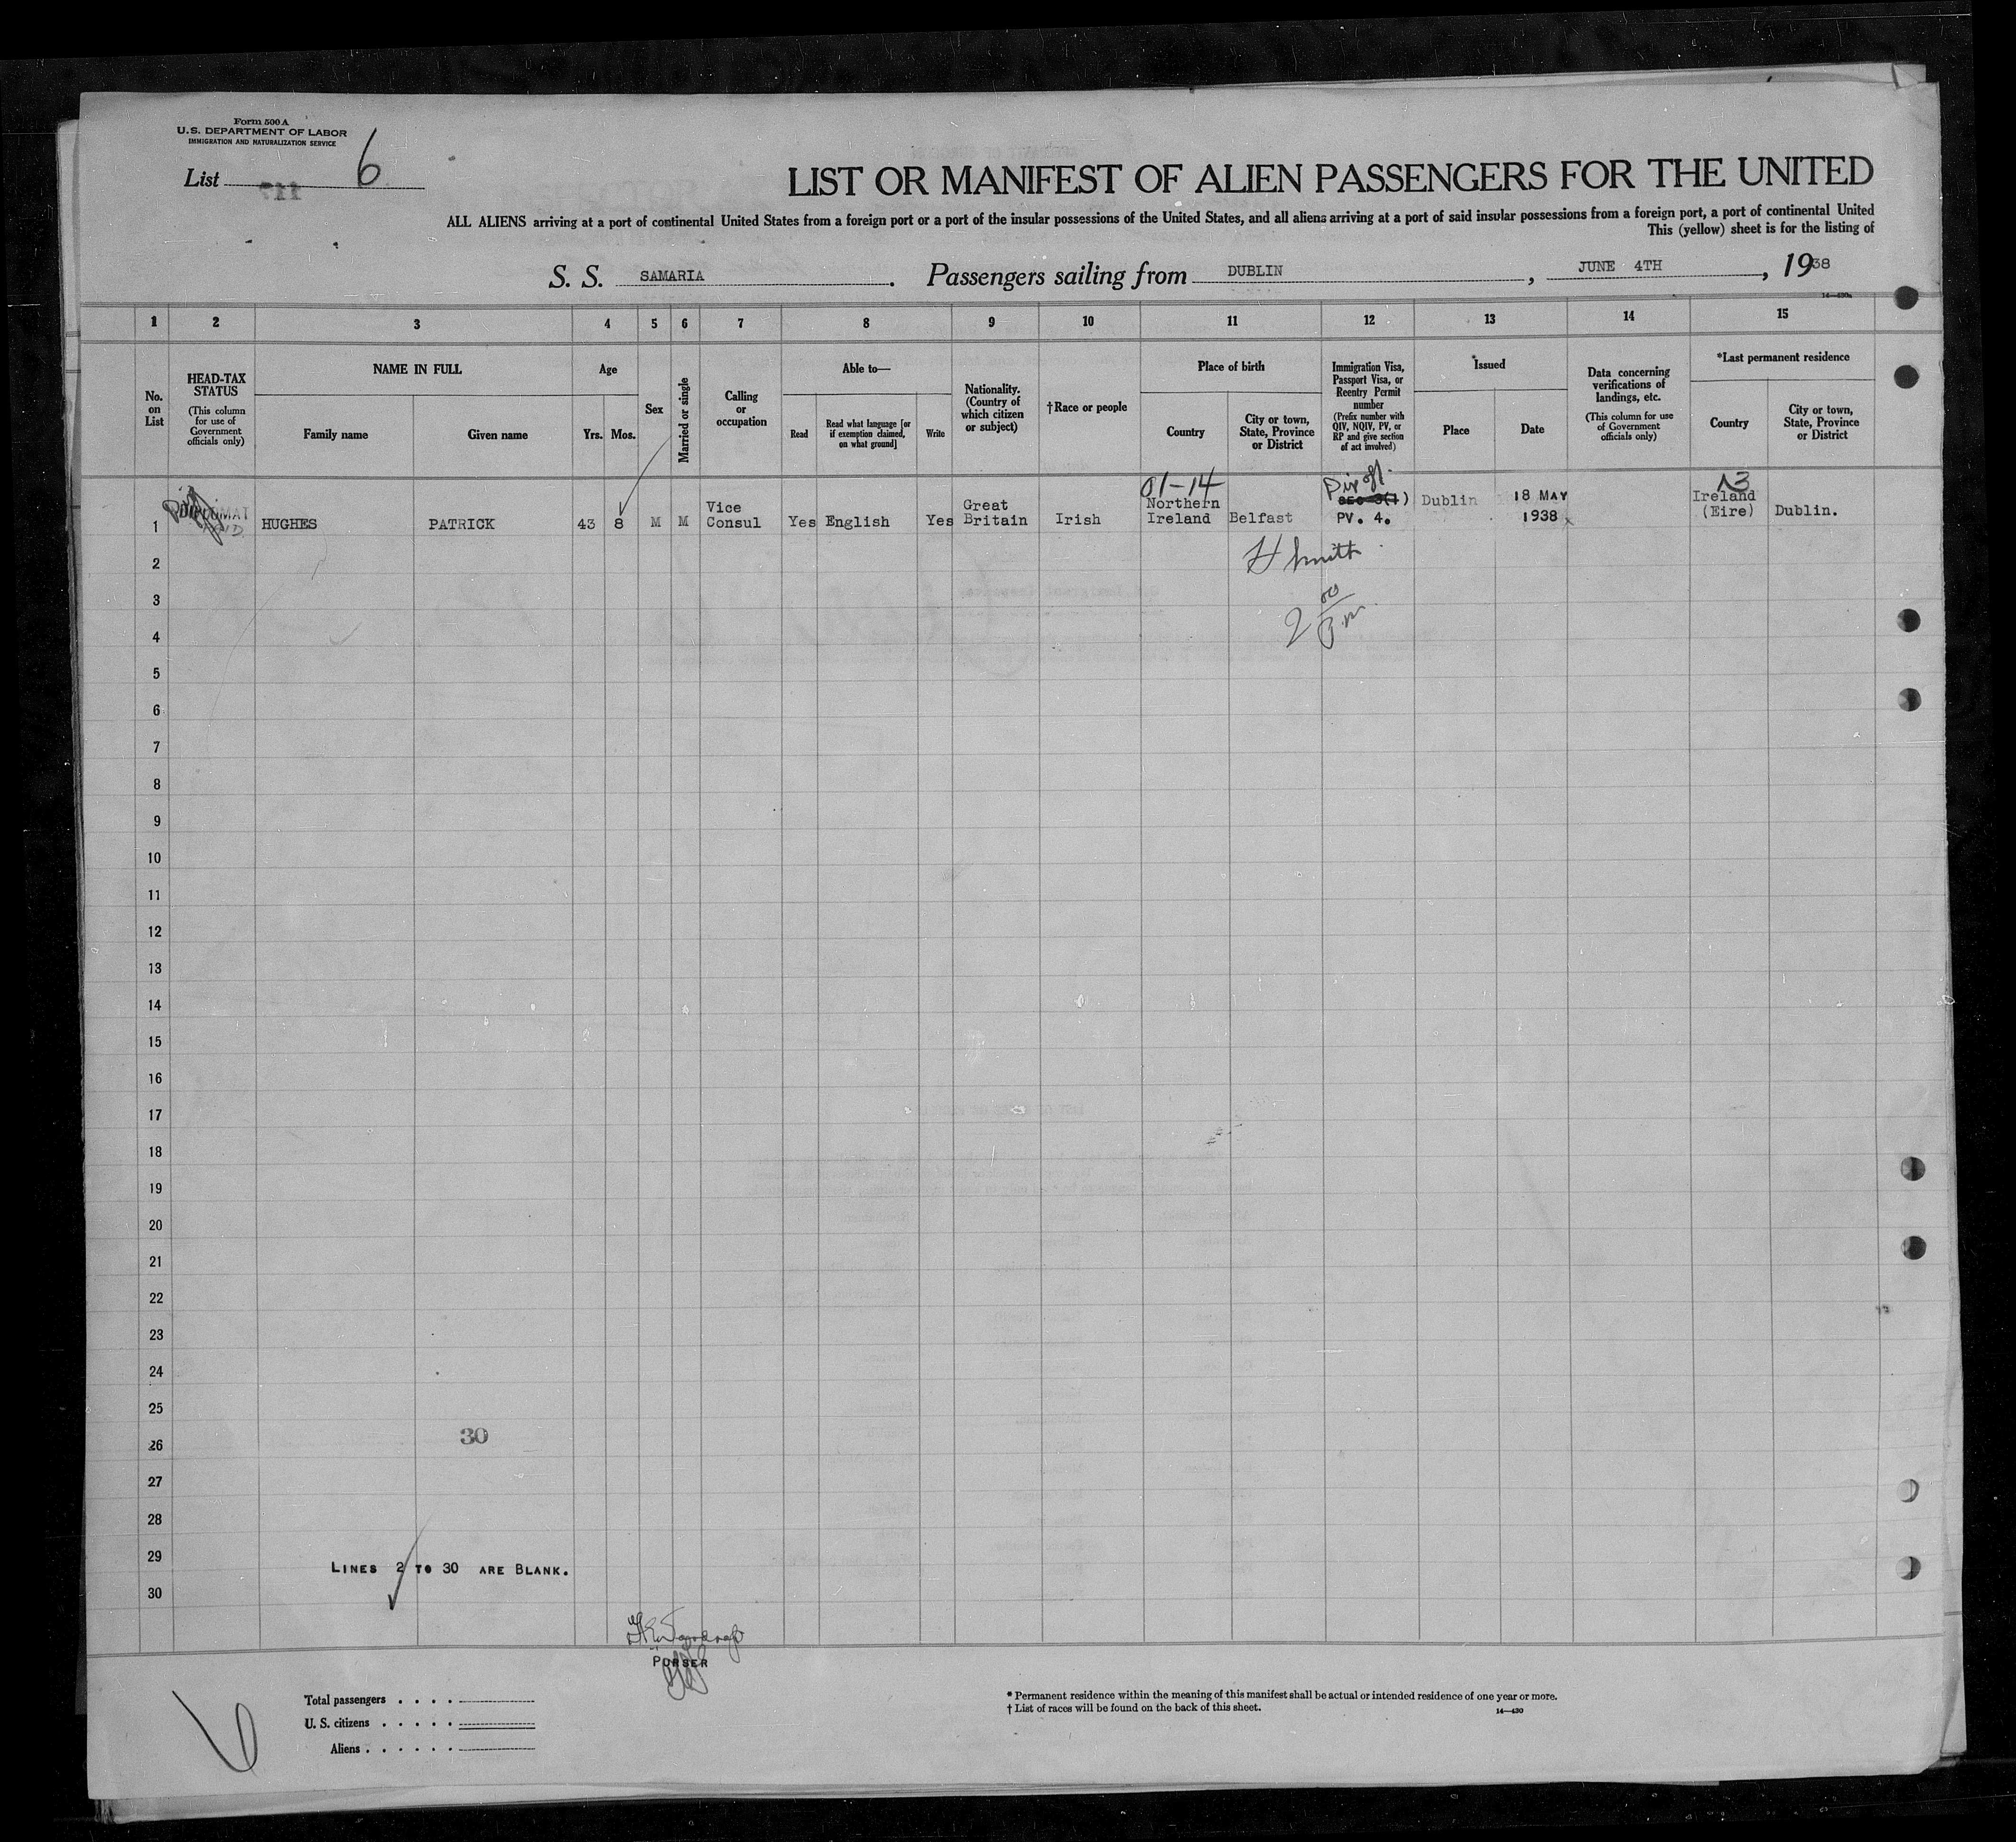 Form 500 A
U.S. DEPARTMENT OF LABOR
IMMIGRATION AND NATURALIZATION SERVICE
List 6
LIST OR MANIFEST OF ALIEN PASSENGERS FOR THE UNITED
ALL ALIENS arriving at a port of continental United States from a foreign port or a port of the insular possessions of the United States, and all aliens arriving at a port of said insular possessions from a foreign port, a port of continental United
This (yellow) sheet is for the listing of
S. S. SAMARIA. Passengers sailing from DUBLIN, JUNE 4TH, 1938
14—430a
1 2 3 4 5 6 7 8 9 10 11 12 13 14 15
No. on List
HEAD-TAX STATUS
(This column for use of Government officials only)
NAME IN FULL
Family name
Given name
Age
Yrs. Mos.
Sex
Married or single
Calling or occupation
Able to—
Read
Read what language [or if exemption claimed, on what ground]
Write
Nationality. (Country of which citizen or subject)
†Race or people
Place of birth
Country
City or town, State, Province or District
Immigration Visa, Passport Visa, or Reentry Permit number
(Prefix number with QIV, NQIV, PV, or RP and give section of act involved)
*Issued
Place
Date
Data concerning verifications of landings, etc.
(This column for use of Government officials only)
*Last permanent residence
Country
City or town, State, Province or District
1 HUGHES PATRICK 43 8 M M Vice Consul Yes English Yes Great Britain Irish 01-14 Northern Ireland Belfast PV. 4. Dublin 18 MAY 1938 Ireland (Eire) Dublin.
2 H Smith
3
4
5
6
7
8
9
10
11
12
13
14
15
16
17
18
19
20
21
22
23
24
25
26 30
27
28
29 LINES 2 TO 30 ARE BLANK.
30
PURSER
6
Total passengers
U. S. citizens
Aliens
* Permanent residence within the meaning of this manifest shall be actual or intended residence of one year or more.
† List of races will be found on the back of this sheet.
14—430